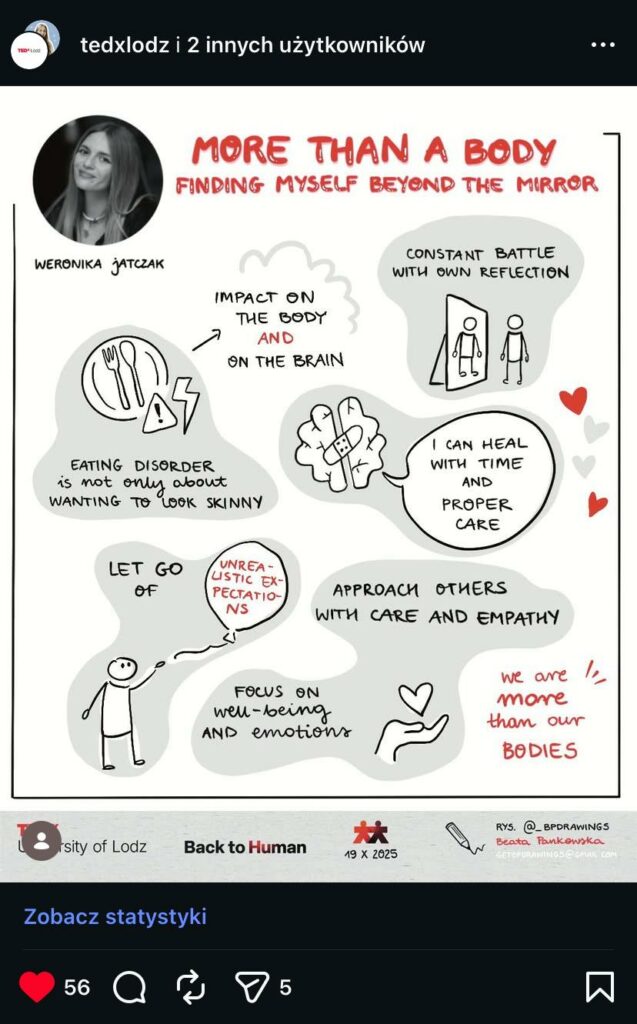 tedxlodz i 2 innych użytkowników
MORE THAN A BODY
FINDING MYSELF BEYOND THE MIRROR
WERONIKA JATCZAK
IMPACT ON
THE BODY
AND
ON THE BRAIN
CONSTANT BATTLE
WITH OWN REFLECTION
EATING DISORDER
is not only about
WANTING TO LOOK SKINNY
I CAN HEAL
WITH TIME
AND
PROPER
CARE
LET GO
OF
UNREA-
LISTIC EX-
PECTATIO-
NS
APPROACH OTHERS
WITH CARE AND EMPATHY
FOCUS ON
well-being
AND emotions
we are
more
than our
BODIES
of Lodz
Back to Human
19 X 2025
RYS. @_BPDRAWINGS
Beata Pankowska
Zobacz statystyki
56
5